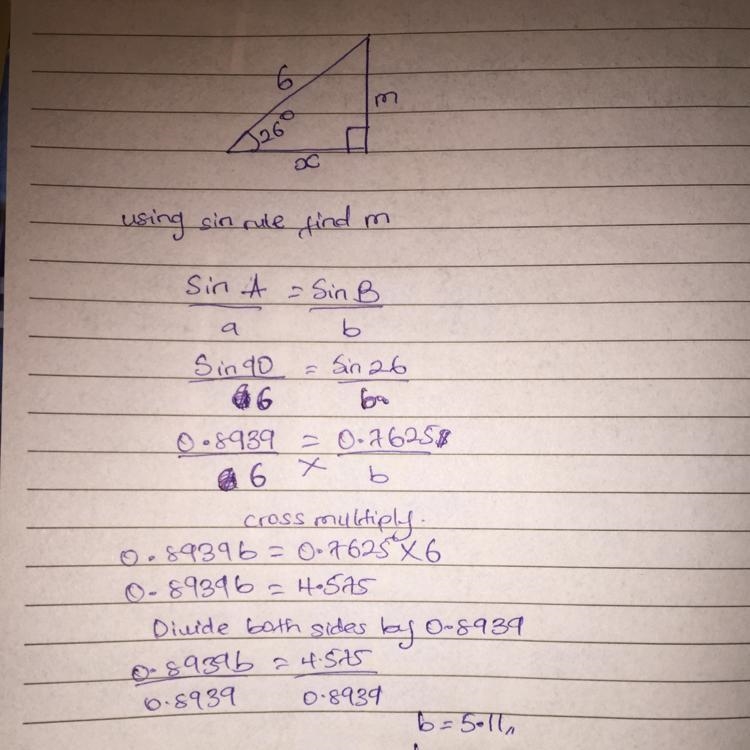 6
m
26°
x
using sin rule find m
Sin A = Sin B
a b
Sin 90 = Sin 26
6 b
0.8939 = 0.7625
6 × b
cross multiply.
0.8939b = 0.7625 × 6
0.8939b = 4.575
Divide both sides by 0.8939
0.8939b = 4.575
0.8939 0.8939
b = 5.11,,